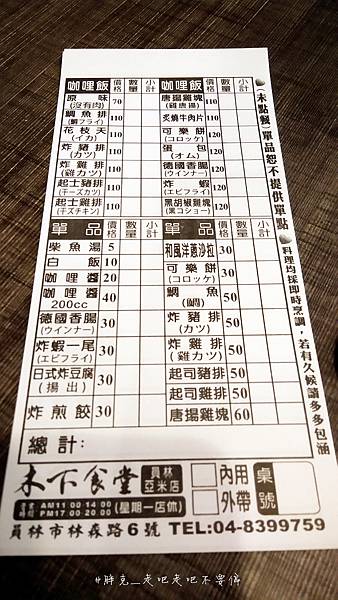 咖哩飯 價格 數量 小計 咖哩飯 價格 數量 小計
原味(沒有肉) 70 唐揚雞塊(雞唐揚) 110
鯛魚排(鯛フライ) 110 炙燒牛肉片 110
花枝天(イカ) 110 可樂餅(コロッケ) 110
炸豬排(カツ) 110 蛋包(オム) 110
炸雞排(雞カツ) 110 德國香腸(ウインナー) 110
起士豬排(チーズカツ) 110 炸蝦(エビフライ) 110
起士雞排(チズチキン) 110 黑胡椒雞塊(黑コショー) 120
單品 價格 數量 小計 單品 價格 數量 小計
柴魚湯 5 和風洋蔥沙拉 30
白飯 10
咖哩醬 20 可樂餅(コロッケ) 30
咖哩醬200cc 40 鯛魚(鯛) 50
德國香腸(ウインナー) 30 炸豬排(カツ) 50
炸蝦一尾(エビフライ) 30 炸雞排(雞カツ) 50
日式炸豆腐(揚出) 30 起司豬排 50
起司雞排 50
炸煎餃 30 唐揚雞塊 60
總計:
●(未點餐)單品恕不提供單點
●料理均採即時烹調,若有久候請多多包涵
木下食堂 員林亞米店 內用 桌號
外帶
AM11:00 14:00
PM17:00 20:00 (星期一店休)
員林市林森路6號 TEL:04-8399759
#胖克_走吧走吧不要偏